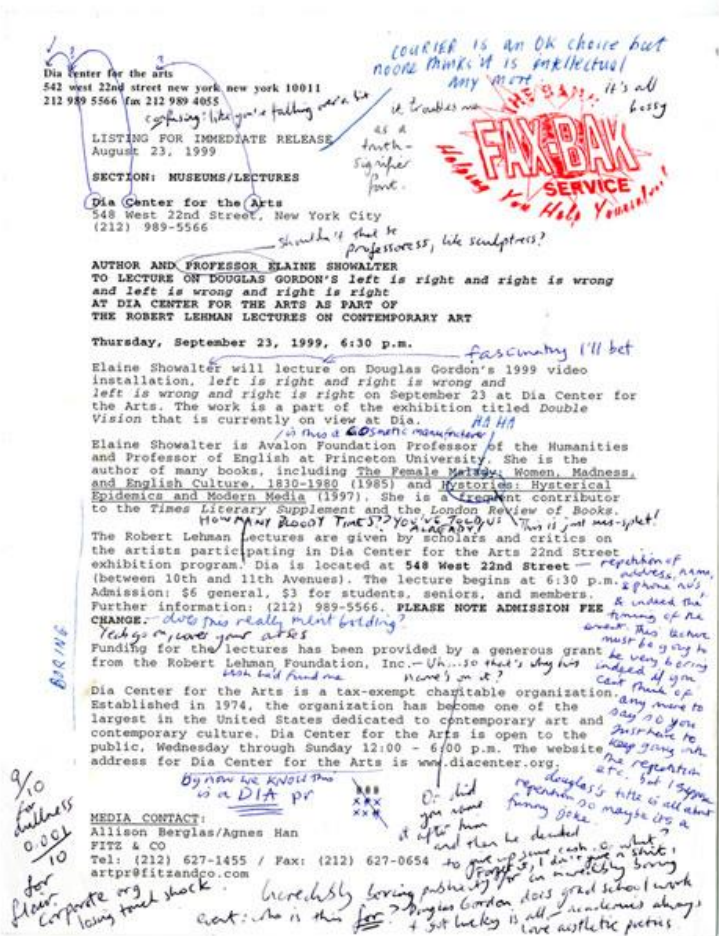 COURIER IS an OK choice but
noone thinks it is intellectual
any more.
it's all
bossy
it troubles me
as a
truth-
signifier
font.
THE BANK
FAX-BAK
SERVICE
Helping You Help Yourselves!
Dia center for the arts
542 west 22nd street new york new york 10011
212 989 5566 fax 212 989 4055
confusing: like you're falling over a bit
LISTING FOR IMMEDIATE RELEASE
August 23, 1999
SECTION: MUSEUMS/LECTURES
Dia Center for the Arts
548 West 22nd Street, New York City
(212) 989-5566
shouldn't that be
professoress, like sculptress?
AUTHOR AND PROFESSOR ELAINE SHOWALTER
TO LECTURE ON DOUGLAS GORDON'S left is right and right is wrong
and left is wrong and right is right
AT DIA CENTER FOR THE ARTS AS PART OF
THE ROBERT LEHMAN LECTURES ON CONTEMPORARY ART
Thursday, September 23, 1999, 6:30 p.m.
fascinating I'll bet
Elaine Showalter will lecture on Douglas Gordon's 1999 video
installation, left is right and right is wrong and
left is wrong and right is right on September 23 at Dia Center for
the Arts. The work is a part of the exhibition titled Double
Vision that is currently on view at Dia.
HA HA
is this a cosmetic manufacturer
Elaine Showalter is Avalon Foundation Professor of the Humanities
and Professor of English at Princeton University. She is the
author of many books, including The Female Malady: Women, Madness,
and English Culture, 1830-1980 (1985) and Hystories: Hysterical
Epidemics and Modern Media (1997). She is a frequent contributor
to the Times Literary Supplement and the London Review of Books.
HOW MANY BLOODY TIMES?? YOU'VE TOLD US
ALREADY!
This is just mis-spelt!
The Robert Lehman Lectures are given by scholars and critics on
the artists participating in Dia Center for the Arts 22nd Street
exhibition program. Dia is located at 548 West 22nd Street
(between 10th and 11th Avenues). The lecture begins at 6:30 p.m.
Admission: $6 general, $3 for students, seniors, and members.
Further information: (212) 989-5566. PLEASE NOTE ADMISSION FEE
CHANGE. - does this really merit bolding?
Yeah go on, cover your arses
repetition of
address, name,
& phone no's
& indeed the
timing of the
event. This lecture
must be going to
be very boring
indeed if you
can't think of
any more to
say so you
just have to
keep going into
the repetition
etc. but I suppose
douglas's title is all about
repetition so maybe it's a
funny joke.
BORING
Funding for the lectures has been provided by a generous grant
from the Robert Lehman Foundation, Inc. - Uh...so that's why his
name's on it?
wish he'd fund me
Dia Center for the Arts is a tax-exempt charitable organization.
Established in 1974, the organization has become one of the
largest in the United States dedicated to contemporary art and
contemporary culture. Dia Center for the Arts is open to the
public, Wednesday through Sunday 12:00 - 6:00 p.m. The website
address for Dia Center for the Arts is www.diacenter.org.
By now we KNOW this
is a DIA pr
###
xxx
Or did
you name
it after him
and then he decided
to give up some cash or what?
Forget it, I don't give a shit!
MEDIA CONTACT:
Allison Berglas/Agnes Han
FITZ & CO
Tel: (212) 627-1455 / Fax: (212) 627-0654
artpr@fitzandco.com
9/10
for
dullness
0.001
10
for
flair.
corporate org
losing touch shock.
Incredibly boring publicity for an incredibly boring
event: who is this for? Douglas Gordon does grad school work
& got lucky is all - academics always
love aesthetic poetics.